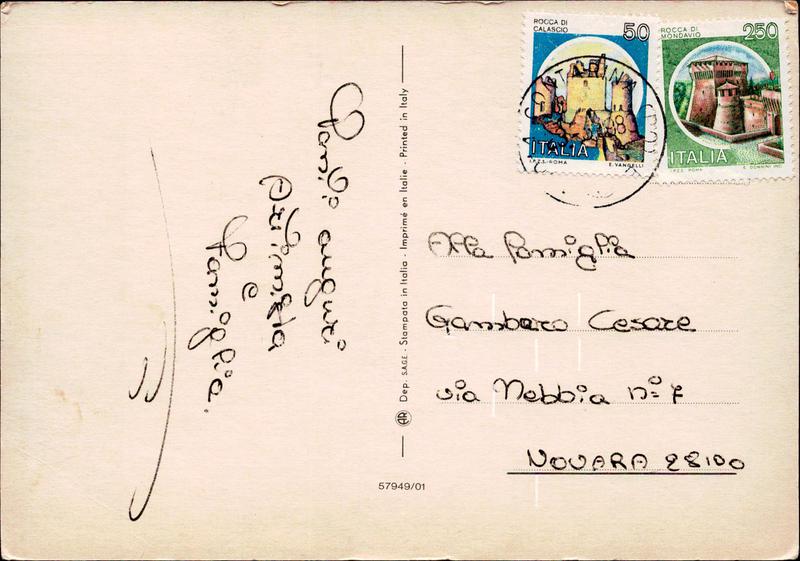 ROCCA DI
CALASCIO
50
ITALIA
I.P.Z.S.-ROMA E. VANGELLI
ROCCA DI
MONDAVIO
250
ITALIA
I.P.Z.S. ROMA E. DONNINI INC.
auguri
e
Famiglia.
Dep. S.A.G.E. - Stampata in Italia - Imprimé en Italie - Printed in Italy
57949/01
Alla famiglia
Gambaro Cesare
via Nebbia n° 7
NOVARA 28100